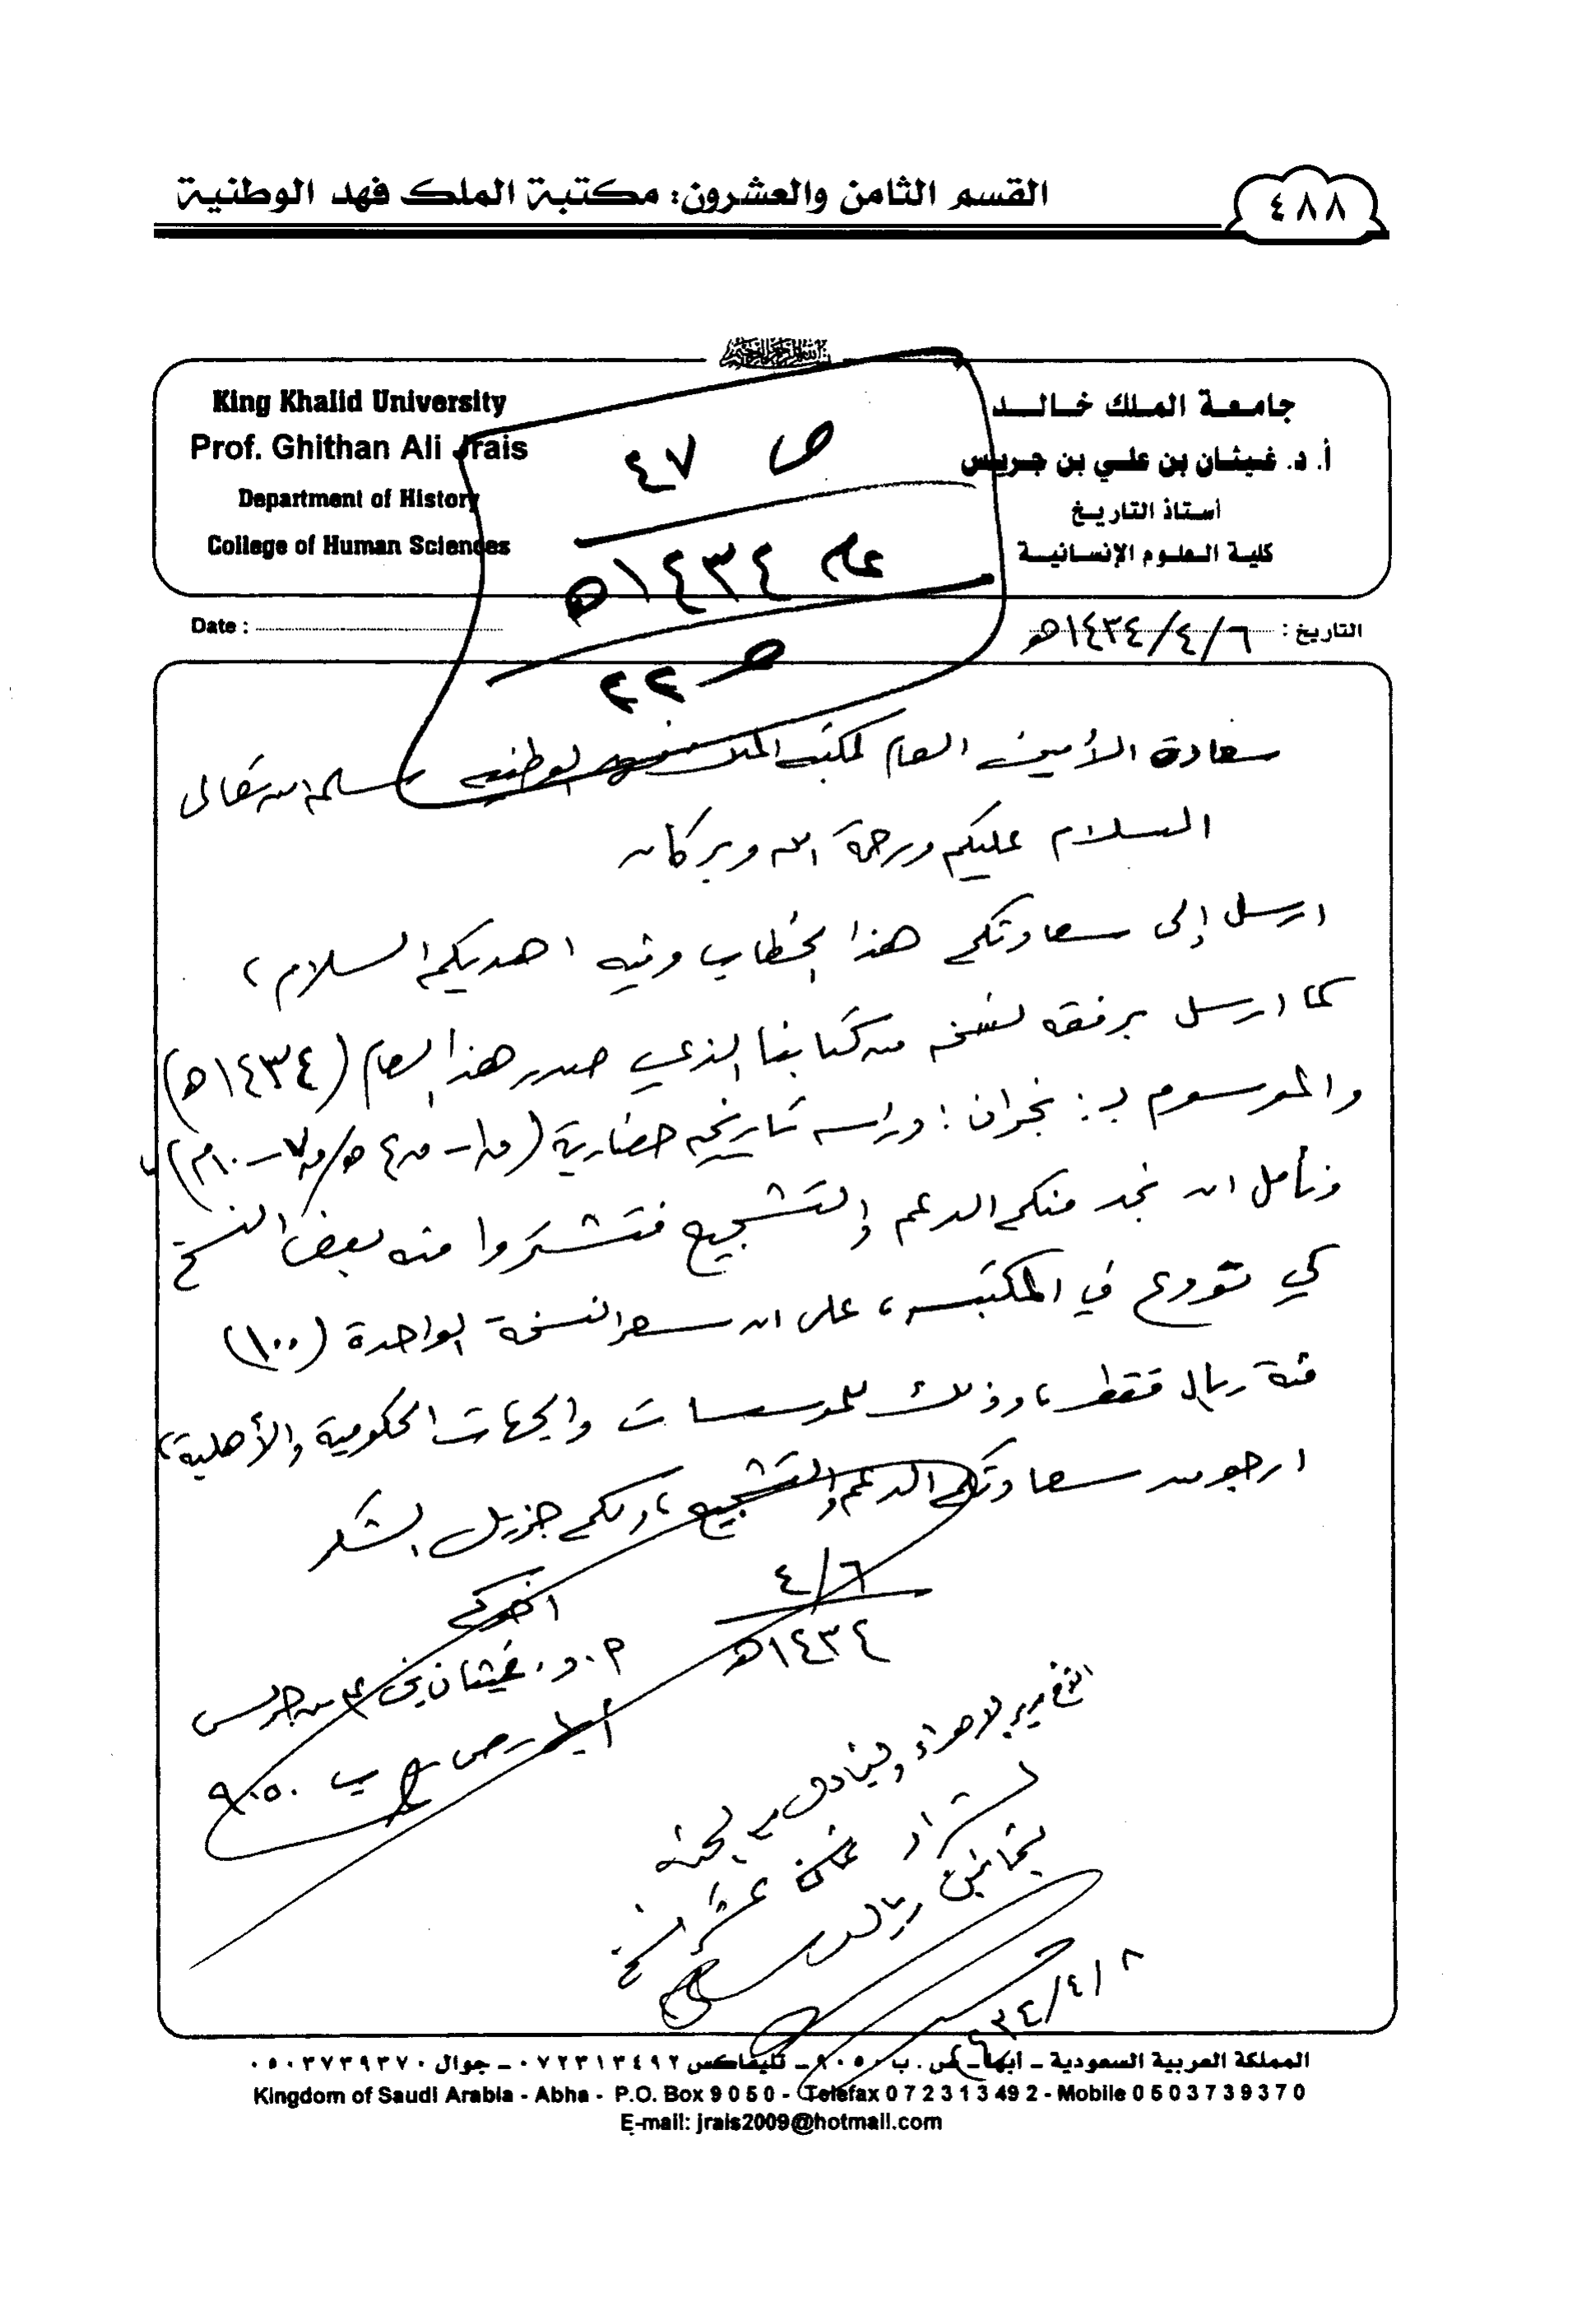 ٤٨٨
القسم الثامن والعشرون: مكتبة الملك فهد الوطنية
جامعة الملك خالد
أ. د. غيثان بن علي بن جريس
أستاذ التاريخ
كلية العلوم الإنسانية
King Khalid University
Prof. Ghithan Ali Jrais
Department of History
College of Human Sciences
ص ٤٧
عام ١٤٣٤هـ
ص ٢٢
التاريخ : ٦/٤/١٤٣٤هـ
Date :
سعادة الأمين العام لمكتبة الملك فهد الوطنية سلمه الله تعالى
السلام عليكم ورحمة الله وبركاته
ارسل إلى سعادتكم هذا الخطاب وفيه اهديكم السلام،
كما ارسل برفقه نسخه من كتابنا الذي صدر هذا العام (١٤٣٤هـ)
والموسوم بـ: نجران: دراسه تاريخيه حضارية (ق١ - ق٤هـ/ق٧ - ١٠م)،
ونأمل ان نجد منكم الدعم والتشجيع فتشتروا منه بعض النسخ
كي تودع في المكتبه، على ان سعر النسخة الواحدة (١٠٠)
مئة ريال فقط، وذلك للمؤسسات والجهات الحكومية والأهلية،
ارجو من سعادتكم الدعم والتشجيع، ولكم جزيل الشكر
٦/٤
١٤٣٤هـ
اخوكم
أ. د. غيثان بن علي بن جريس
أبها - ص ب ٩٠٥٠
نسخ
٨/٤/١٤٣٤
المملكة العربية السعودية - أبها - ص . ب ٩٠٥٠ - تليفاكس ٠٧٢٣١٣٤٩٢ - جوال ٠٥٠٣٧٣٩٣٧٠
Kingdom of Saudi Arabia - Abha - P.O. Box 9 0 5 0 - Telefax 0 7 2 3 1 3 49 2 - Mobile 0 5 0 3 7 3 9 3 7 0
E-mail: jrais2009@hotmail.com